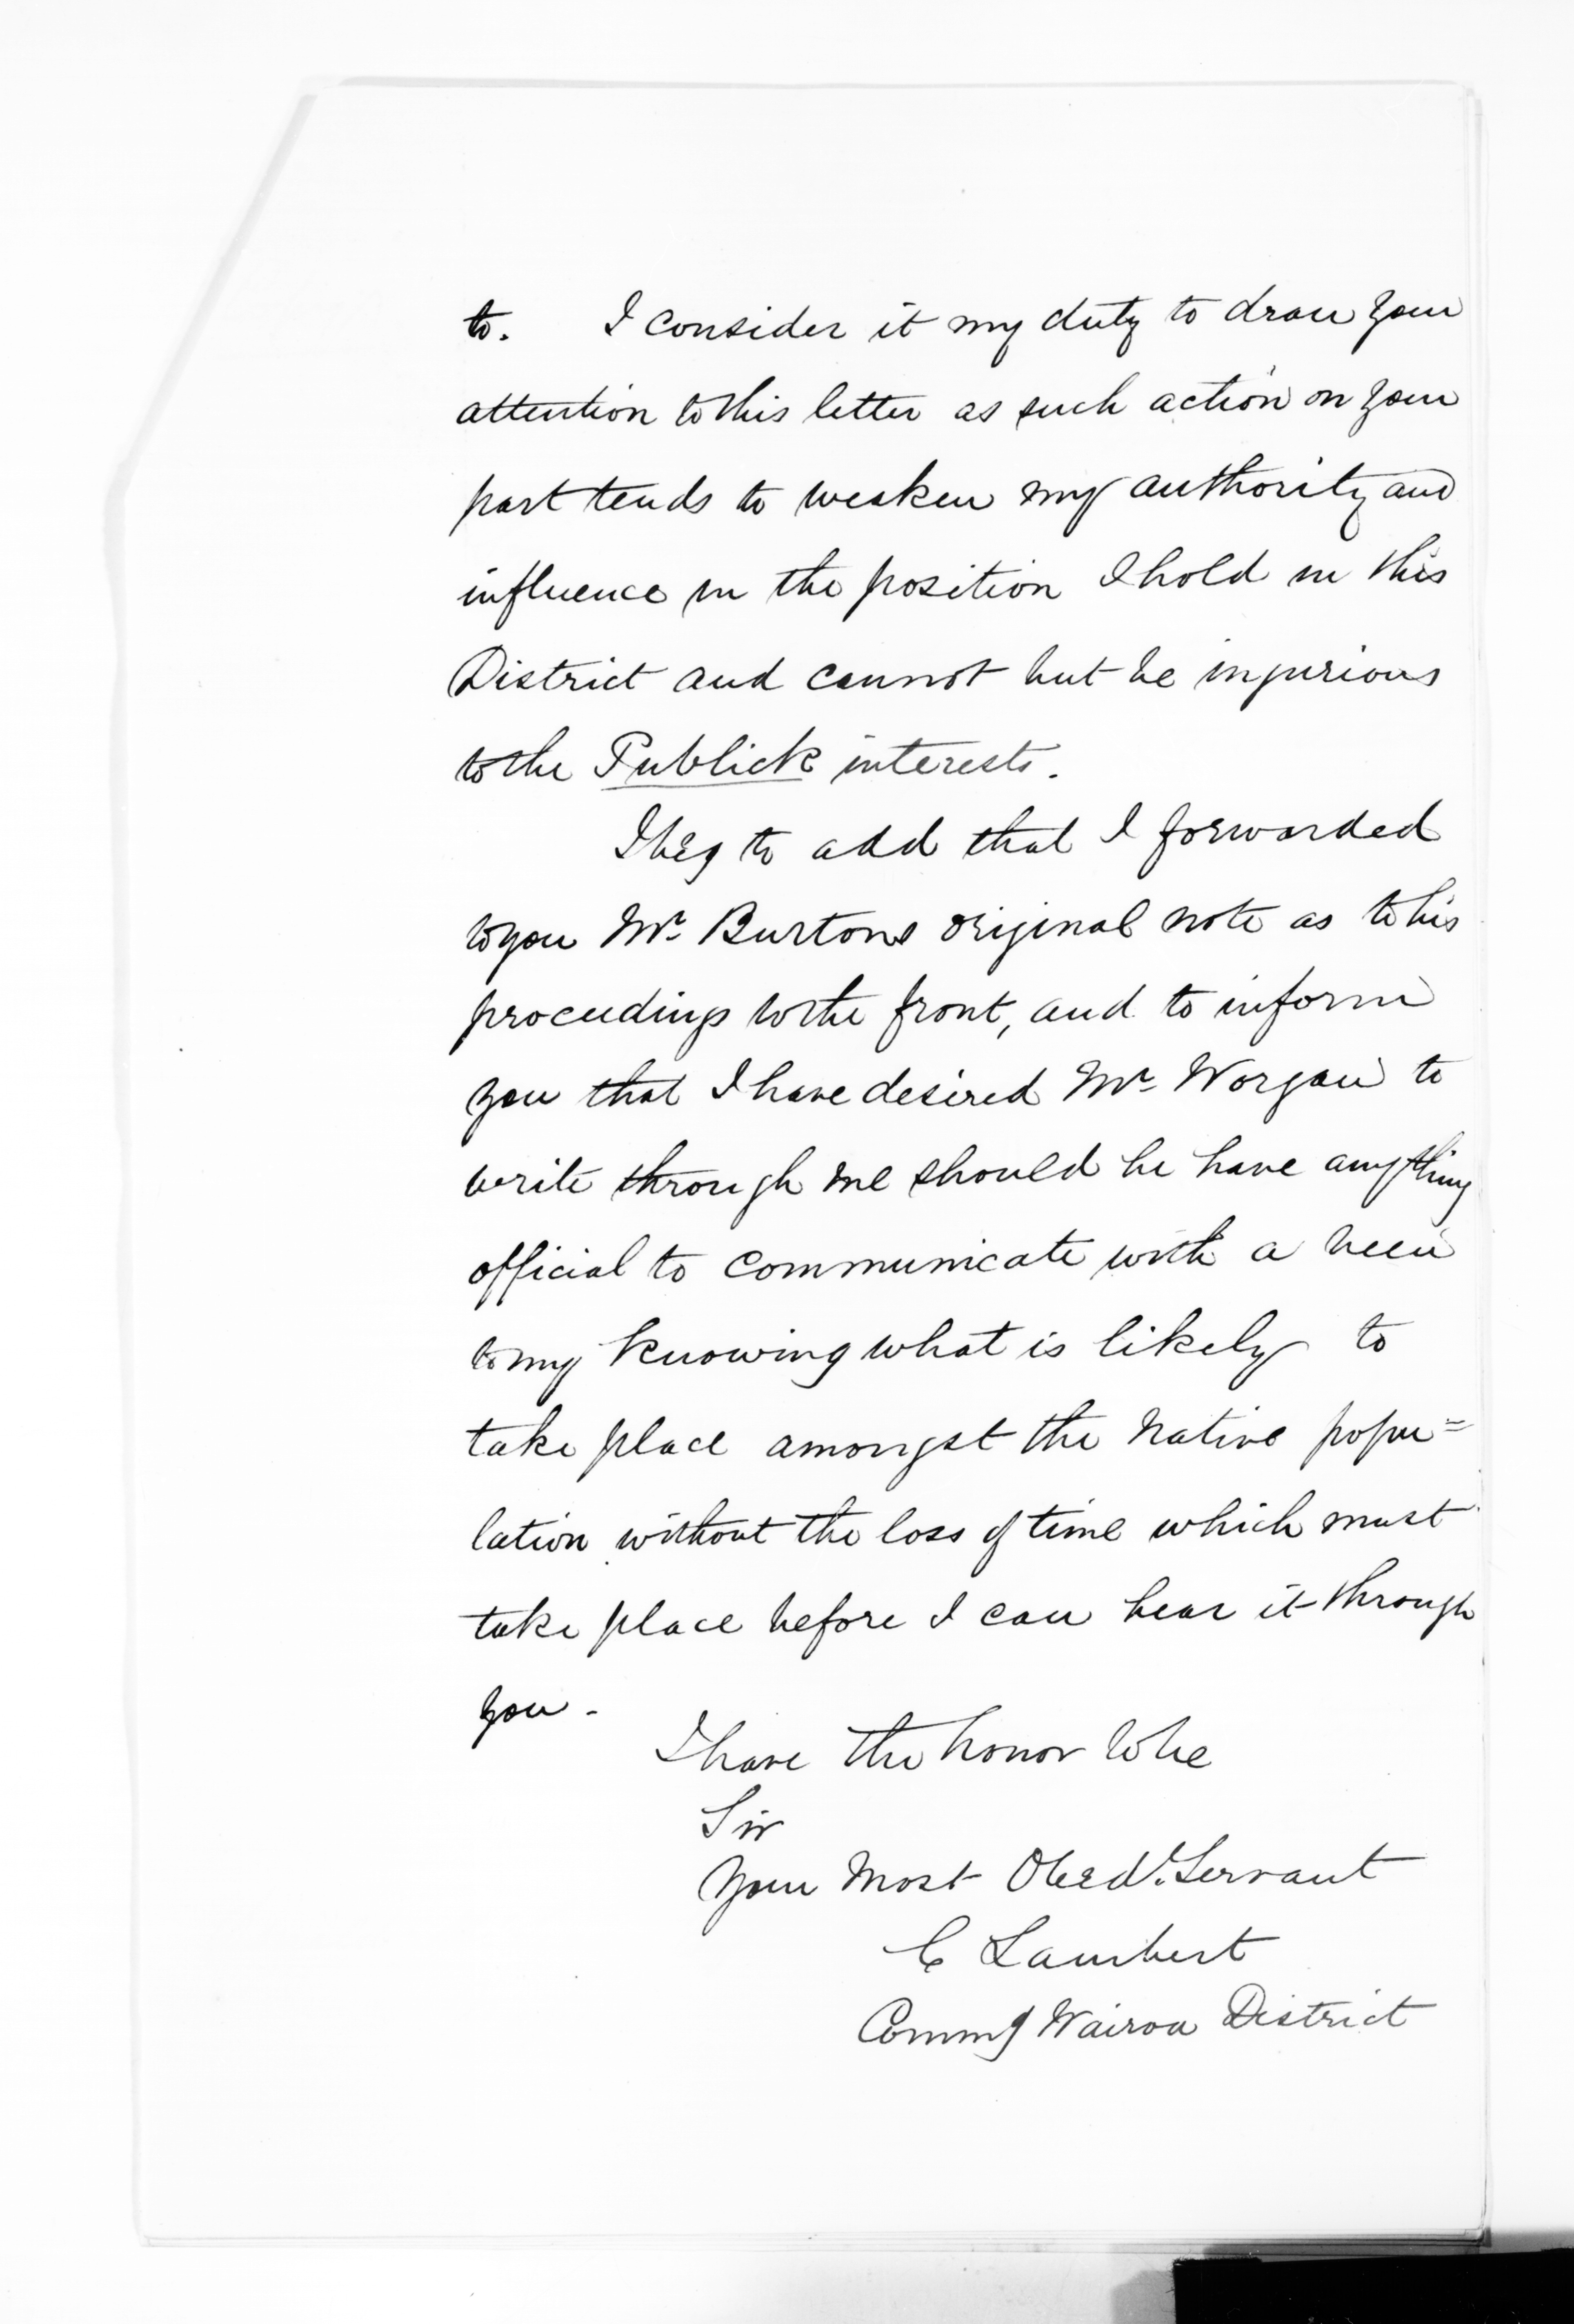 to. I consider it my duty to draw your
attention to this letter as such action on your
part tends to weaken my authority and
influence in the position I hold in this
District and cannot but be injurious
to the Publick interests.
I beg to add that I forwarded
to you Mr Burtons original note as to his
proceedings to the front, and to inform
you that I have desired Mr Worgan to
write through me should he have anything
official to communicate with a view
to my knowing what is likely to
take place amongst the Native popu=
lation without the loss of time which must
take place before I can hear it through
you -
I have the honor to be
Sir
Your Most Obedt. Servant
C Lambert
Commg Wairoa District